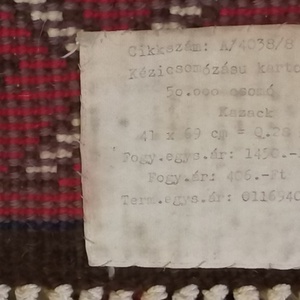 Cikkszám: A/4038/8
Kézicsomózásu
50.000 csomó
Kazack
41 x 69 cm = 0.28
Fogy.egys.ár: 1450.-
Fogy.ár: 406.-Ft
Term.egys.ár: 0116940